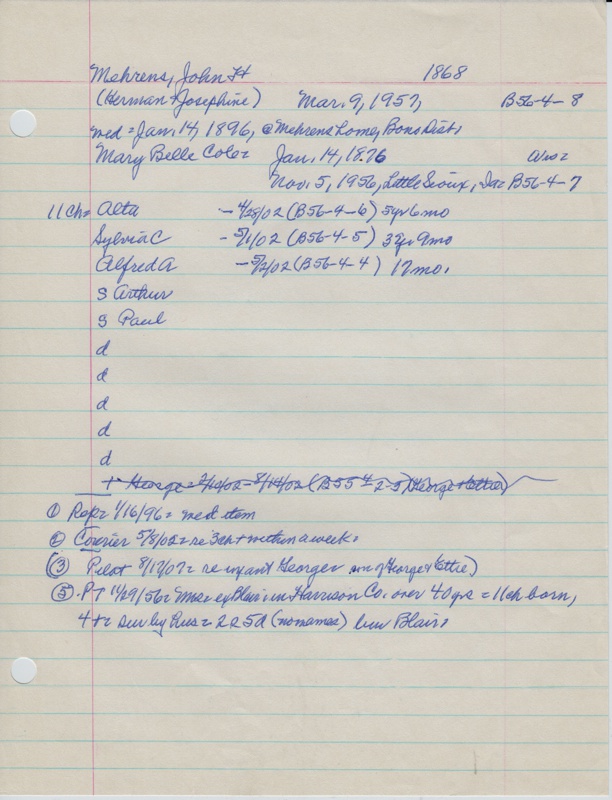 Mehrens, John H 1868
(Herman + Josephine) Mar. 9, 1957, B56-4-8
med = Jan. 14, 1896, @ Mehrens home, Bono Dist.
Mary Belle Cole = Jan. 14, 1876 Also =
Nov. 5, 1956, Little Sioux, Ia = B56-4-7
11 Ch = Alta - 4/28/02 (B56-4-6) 5yr 6mo
Sylvia C - 5/1/02 (B56-4-5) 3yr 9mo
Alfred A - 5/2/02 (B56-4-4) 17 mo.
S Arthur
S Paul
d
d
d
d
d
+ George = /02 - 8/14/02 (B55 2-5) (George + Lottie)
① Rep = 1/16/96 = med item
② Courier 5/8/02 = re 3 ch + within a week.
③ Pilot 8/17/02 = re infant George son of George + Lottie)
⑤ PT 11/29/56 = Mrs = ex Blair = in Harrison Co. over 40 yrs = 11 ch born,
4 + = sur by hus = 2 S 5 d (no names) bur Blair.